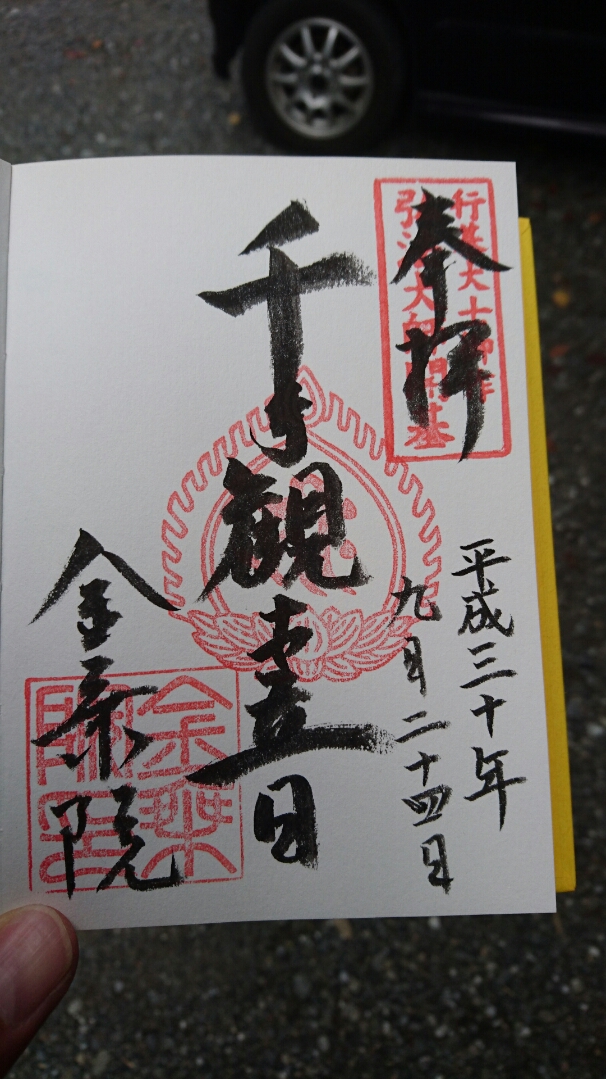 奉拝
行基大士御作
弘法大師開基
平成三十年
九月二十四日
千手観世音
金乗院